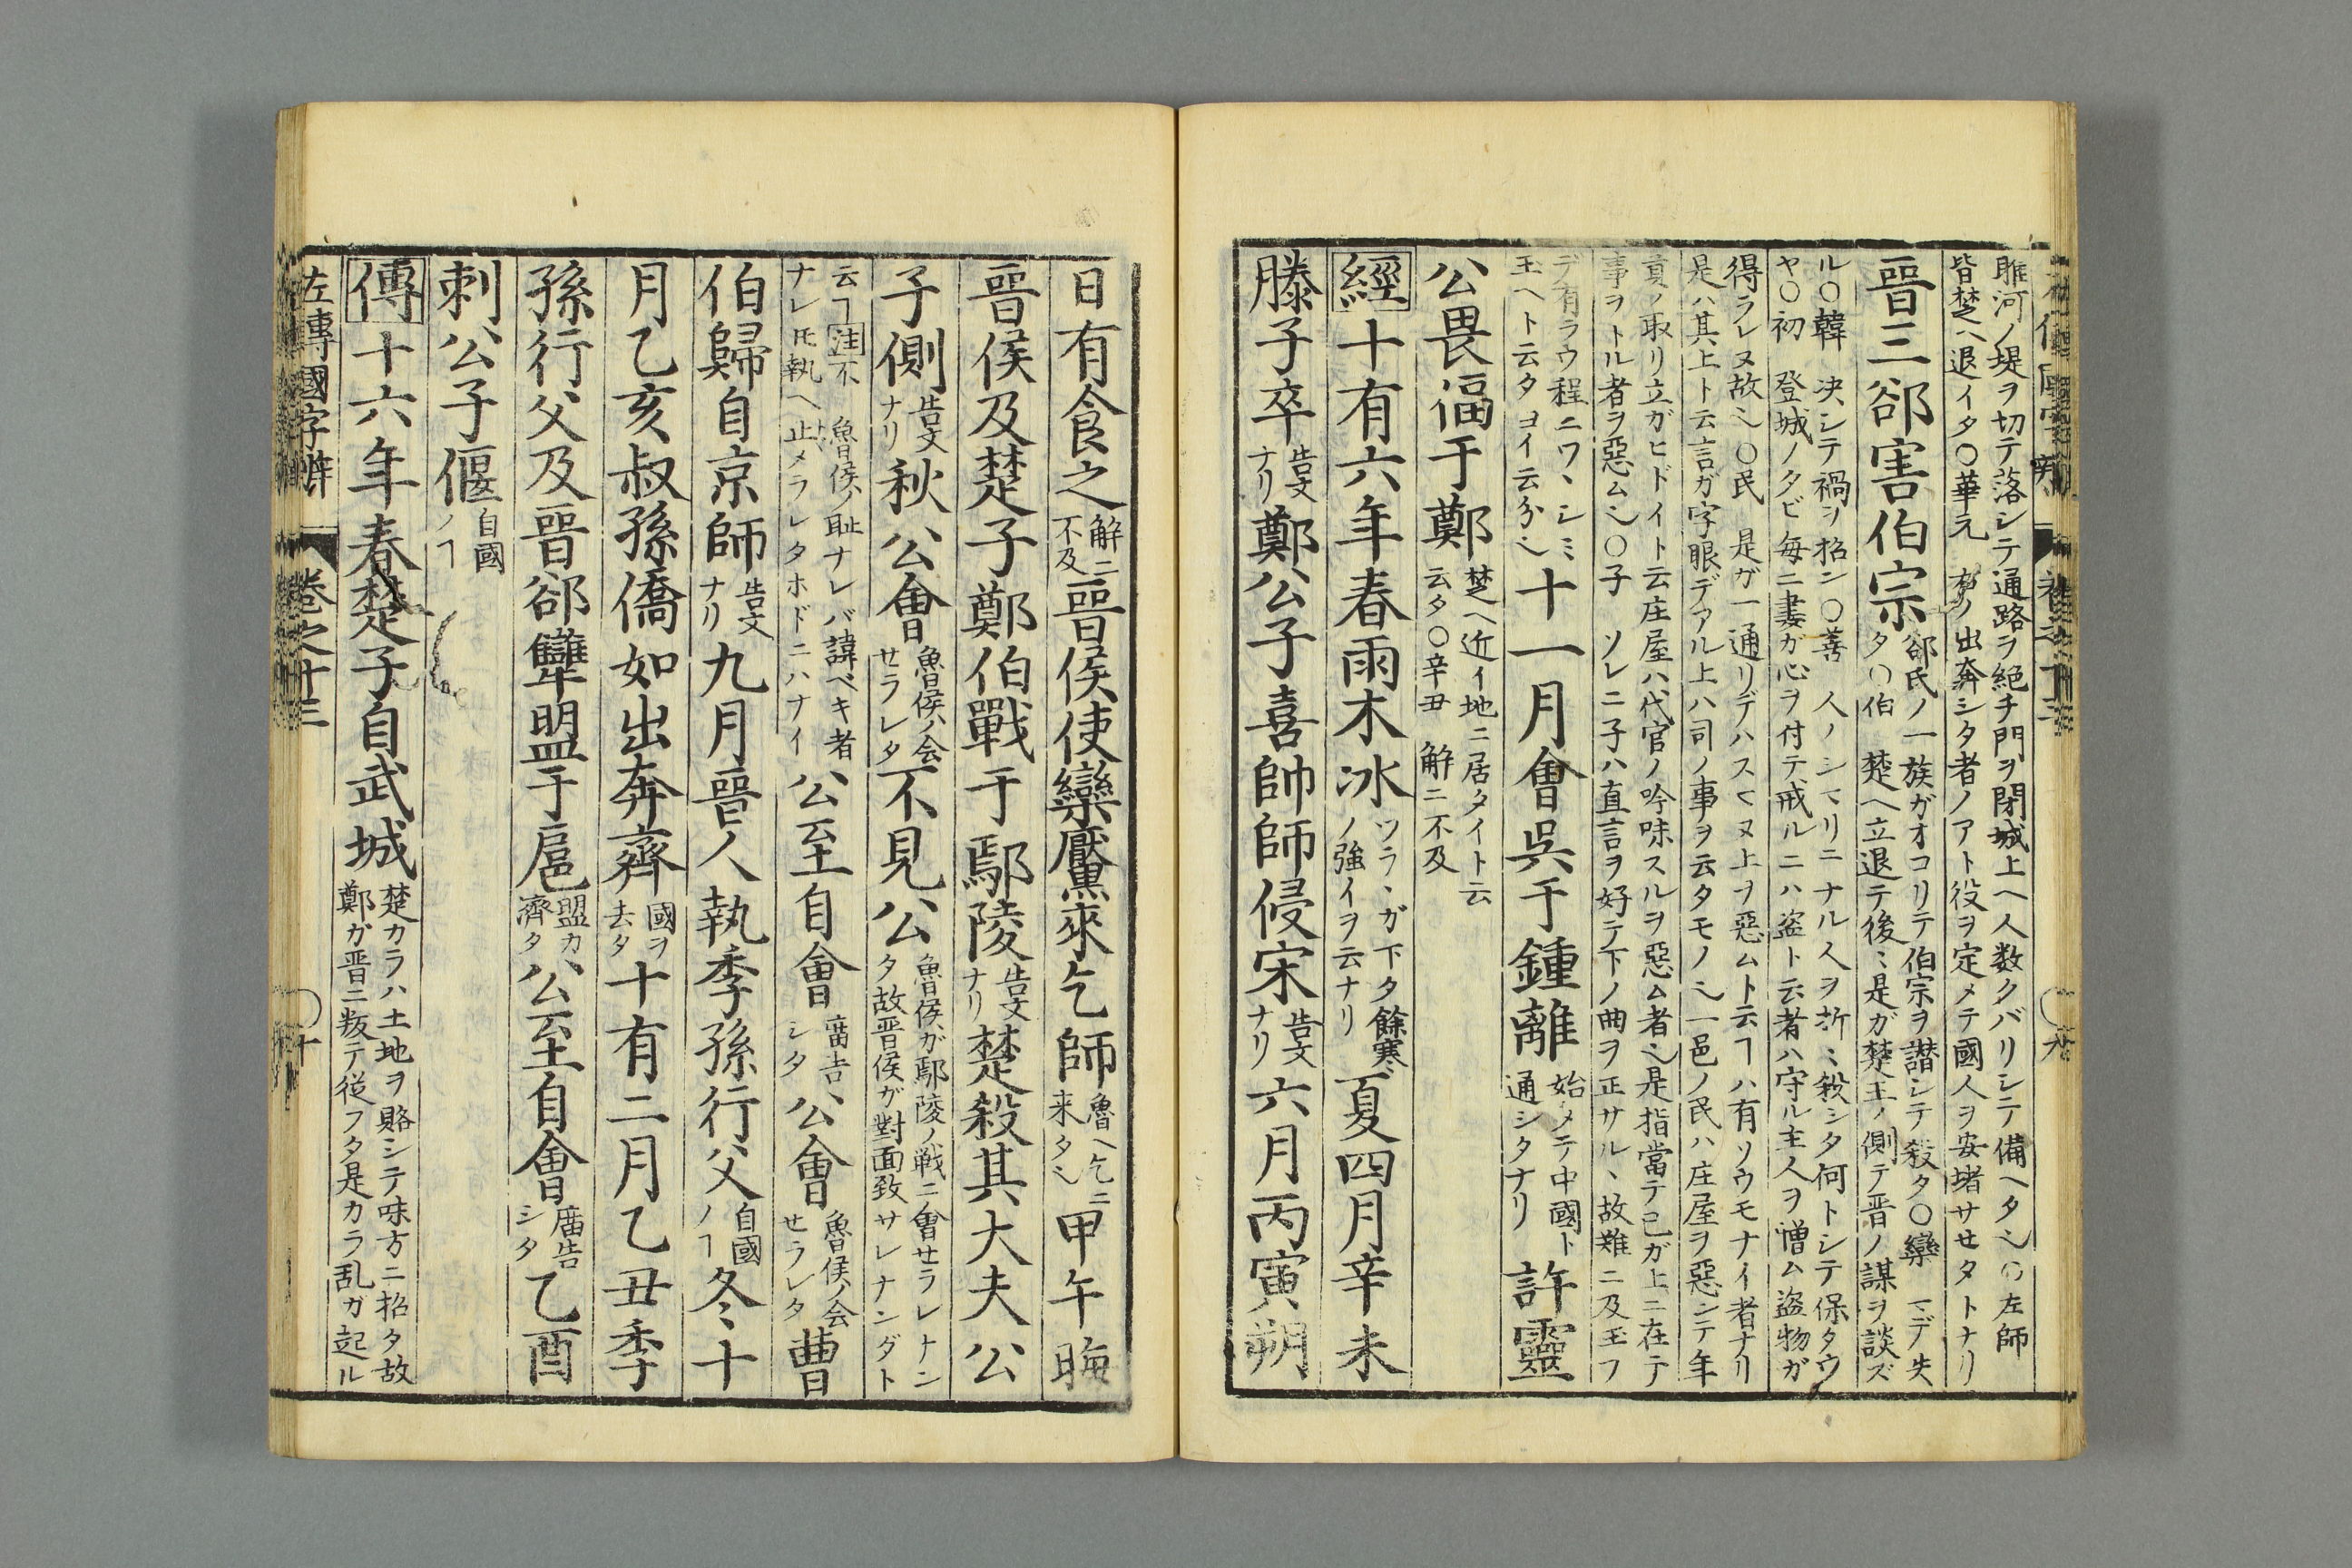 睢河ノ堤ヲ切テ落シテ通路ヲ絶チ門ヲ閉城上ヘ人数クバリシテ備ヘタ〇左師
皆楚ヘ退イタ〇華元 ノ出奔シタ者ノアト役ヲ定メテ國人ヲ安堵サセタトナリ
晉三郤害伯宗
郤氏ノ一族ガオコリテ伯宗ヲ譖シテ殺タ〇欒 マデ失
タ〇伯 楚ヘ立退テ後是ガ楚王ノ側テ晋ノ謀ヲ談ズ
ル〇韓 决シテ禍ヲ招ン〇善 人ノシマリニナル人ヲ折殺シタ何トシテ保タウ
ヤ〇初 登城ノタビ毎ニ妻ガ心ヲ付テ戒ルニハ盗ト云者ハ守ル主人ヲ憎ム盗物ガ
得ラレヌ故〇民 是ガ一通リデハスマヌ上ヲ惡ムト云ヿハ有ソウモナイ者ナリ
是ハ其上ト云言ガ字眼デアル上ハ司ノ事ヲ云タモノ一邑ノ民ハ庄屋ヲ惡ンテ年
貢ノ取リ立ガヒドイト云庄屋ハ代官ノ吟味スルヲ惡ム者是指當テ己ガ上ニ在テ
事ヲトル者ヲ惡ム〇子 ソレニ子ハ直言ヲ好テ下ノ曲ヲ正サル、故難ニ及玉フ
デ有ラウ程ニワ、シミ
玉ヘト云タヨイ云分
十一月會吳于鍾離
始メテ中國ト
通シタナリ
許靈
公畏偪于鄭
楚ヘ近イ地ニ居タイト云
云タ〇辛丑 解ニ不及
經十有六年春雨木冰
ツラヽガ下タ餘寒
ノ強イヲ云ナリ
夏四月辛未
滕子卒
告文
ナリ
鄭公子喜帥師侵宋
告文
ナリ
六月丙寅朔
日有食之
解ニ
不及
晉侯使欒黶來乞師
魯ヘ乞ニ
来タ
甲午晦
晉侯及楚子鄭伯戰于鄢陵
告文
ナリ
楚殺其大夫公
子側
告文
ナリ
秋公會
魯侯ハ会
セラレタ
不見公
魯侯ガ鄢陵ノ戦ニ會セラレナン
タ故晋侯ガ對面致サレナンダト
云ヿ注不 魯侯ノ耻ナレバ諱ベキ者
ナレ𪜈執ヘ止メラレタホドニハナイ
公至自會
廟告
シタ
公會
魯侯ノ会
セラレタ
曹
伯歸自京師
告文
ナリ
九月晉人執季孫行父
自國
ノヿ
冬十
月乙亥叔孫僑如出奔齊
國ヲ
去タ
十有二月乙丑季
孫行父及晉郤犨盟于扈
盟カ
濟タ
公至自會
廟告
シタ
乙酉
刺公子偃
自國
ノヿ
傳十六年春楚子自武城
楚カラハ土地ヲ賂シテ味方ニ招タ故
鄭ガ晋ニ叛テ從フタ是カラ乱ガ起ル
左傳國字辨 卷之十三 十